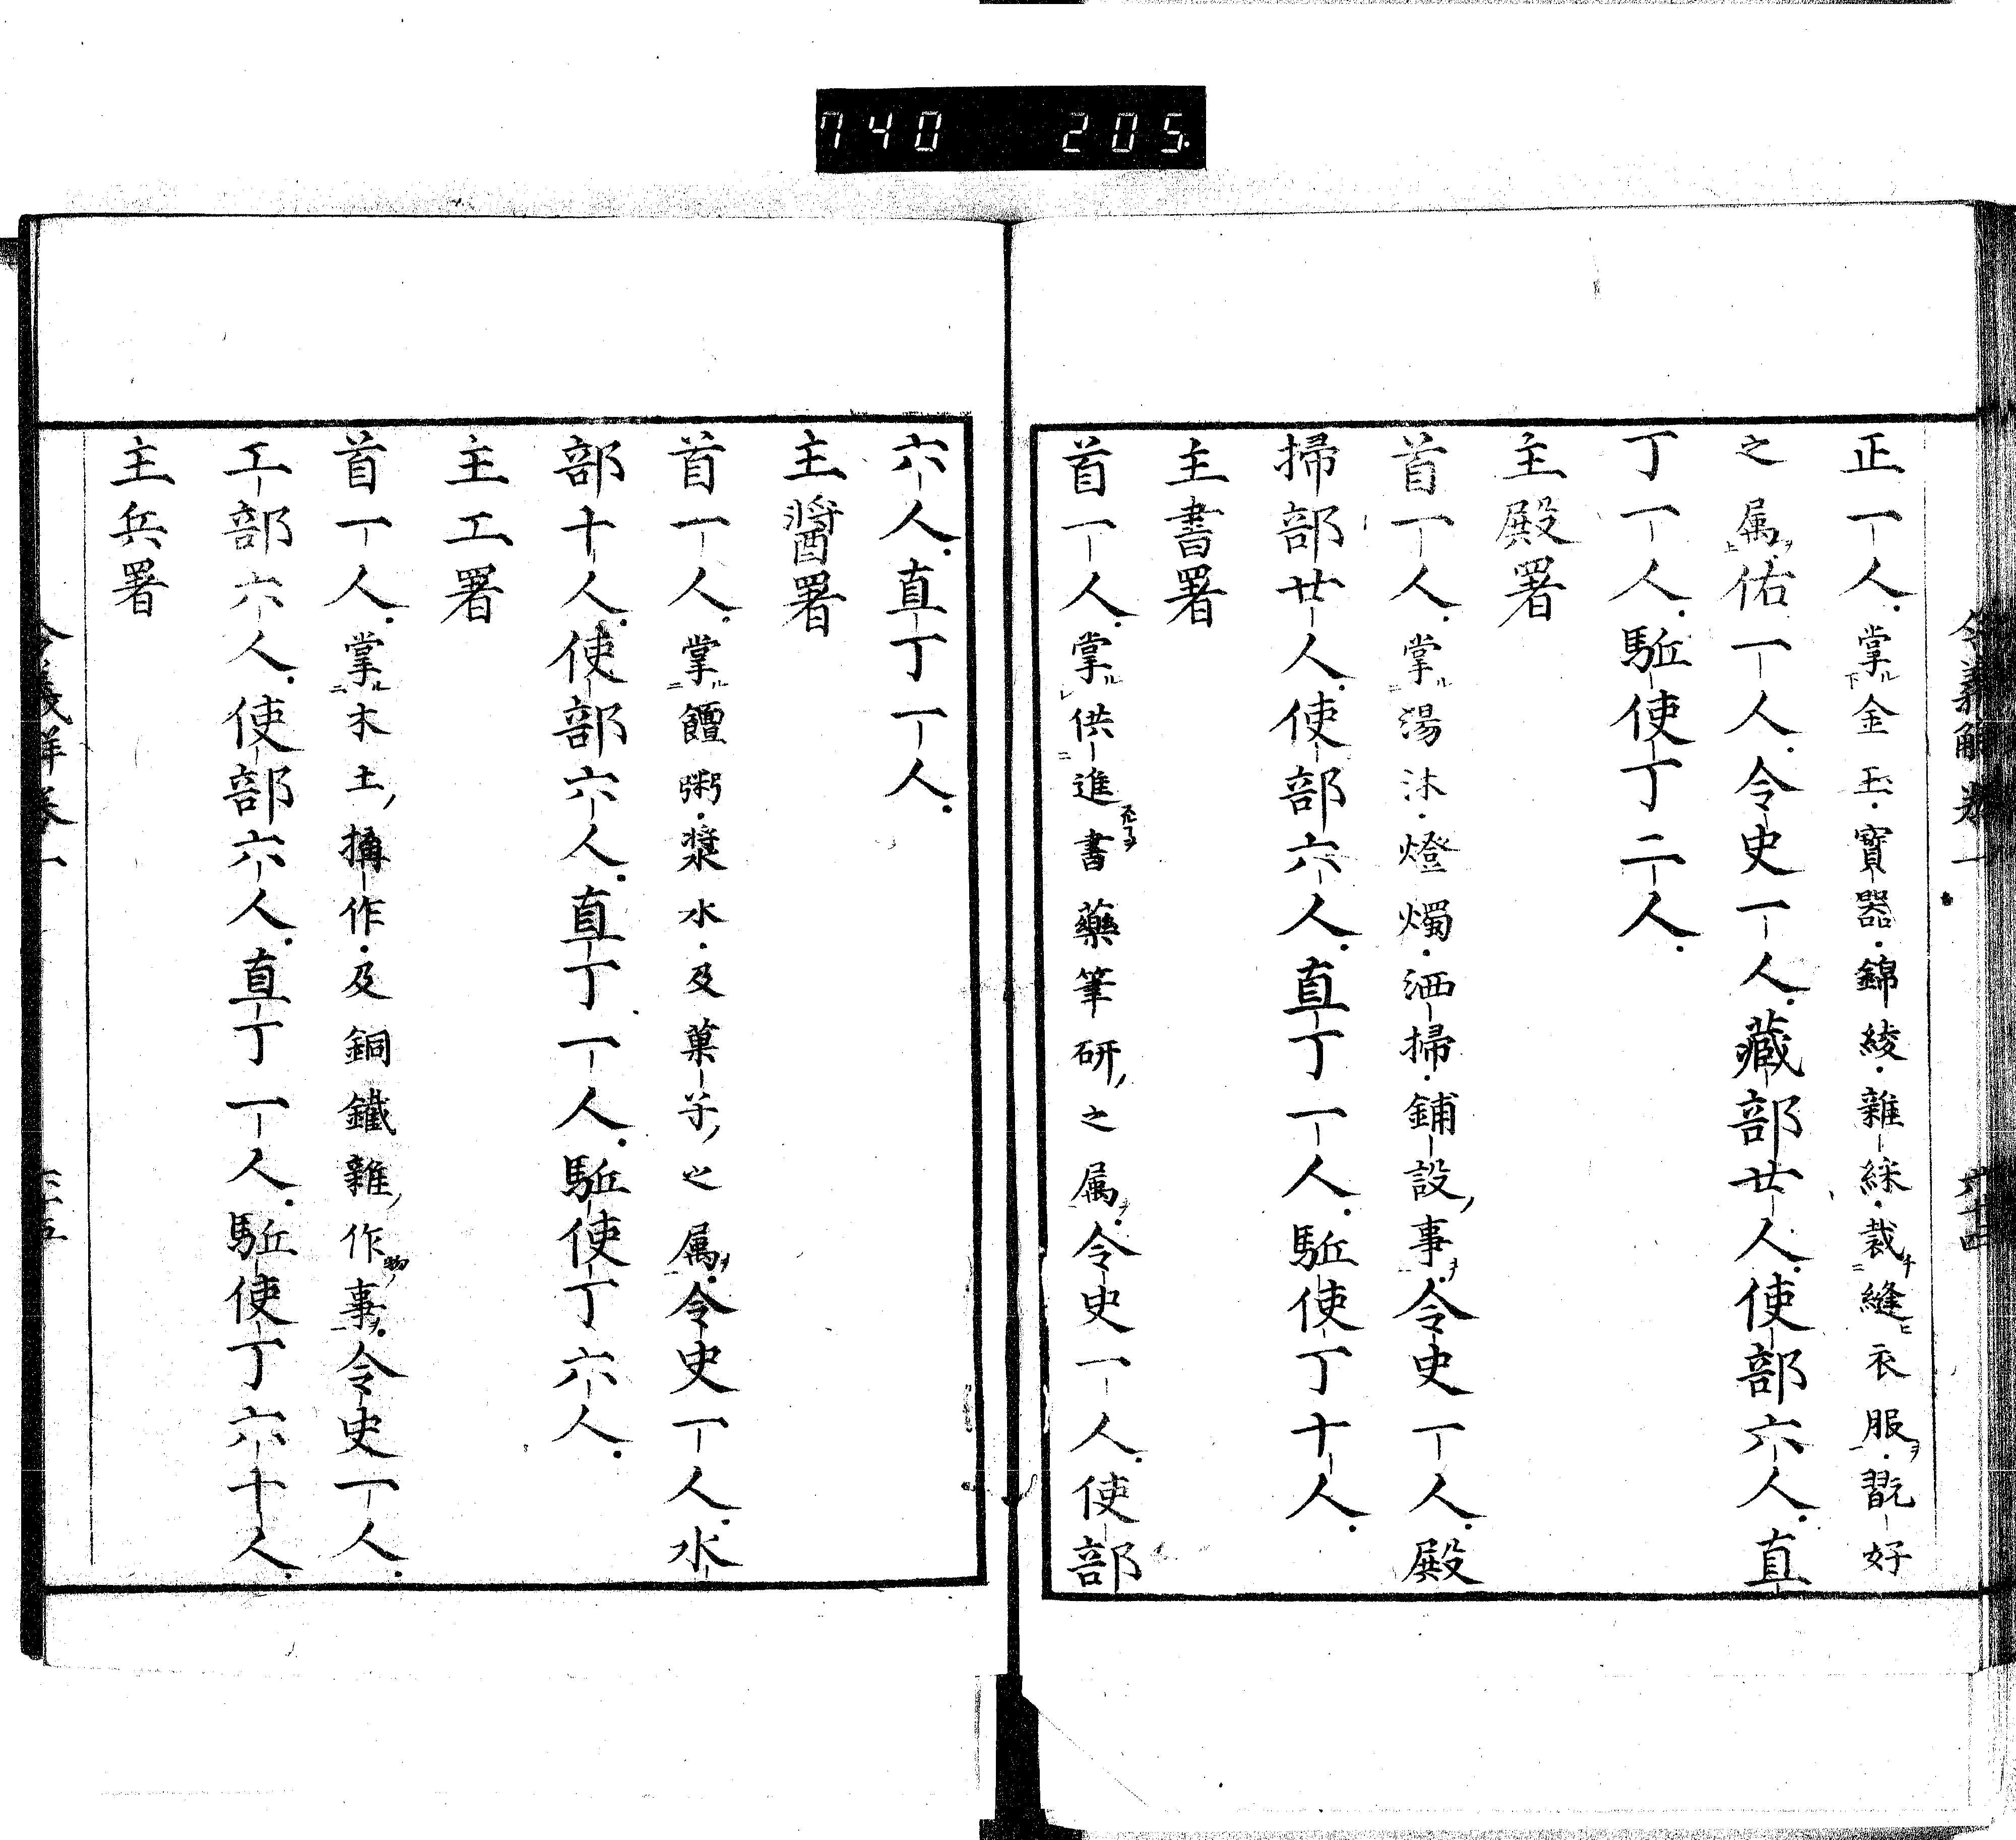 740 205
令義解卷一 廿四
正一人掌金玉寶器錦綾雜綵裁縫衣服翫好
之属佑一人令史一人藏部廿人使部六人直
丁一人駈使丁二人
主殿署
首一人掌湯沐燈燭洒掃鋪設事令史一人殿
掃部廿人使部六人直丁一人駈使丁十人
主書署
首一人掌供進書藥筆研之属令史一人使部
六人直丁一人
主醤署
首一人掌饘粥漿水及菓子之属令史一人水
部十人使部六人直丁一人駈使丁六人
主工署
首一人掌木土搆作及銅鐵雜作事令史一人
工部六人使部六人直丁一人駈使丁六十人
主兵署
令義解卷一